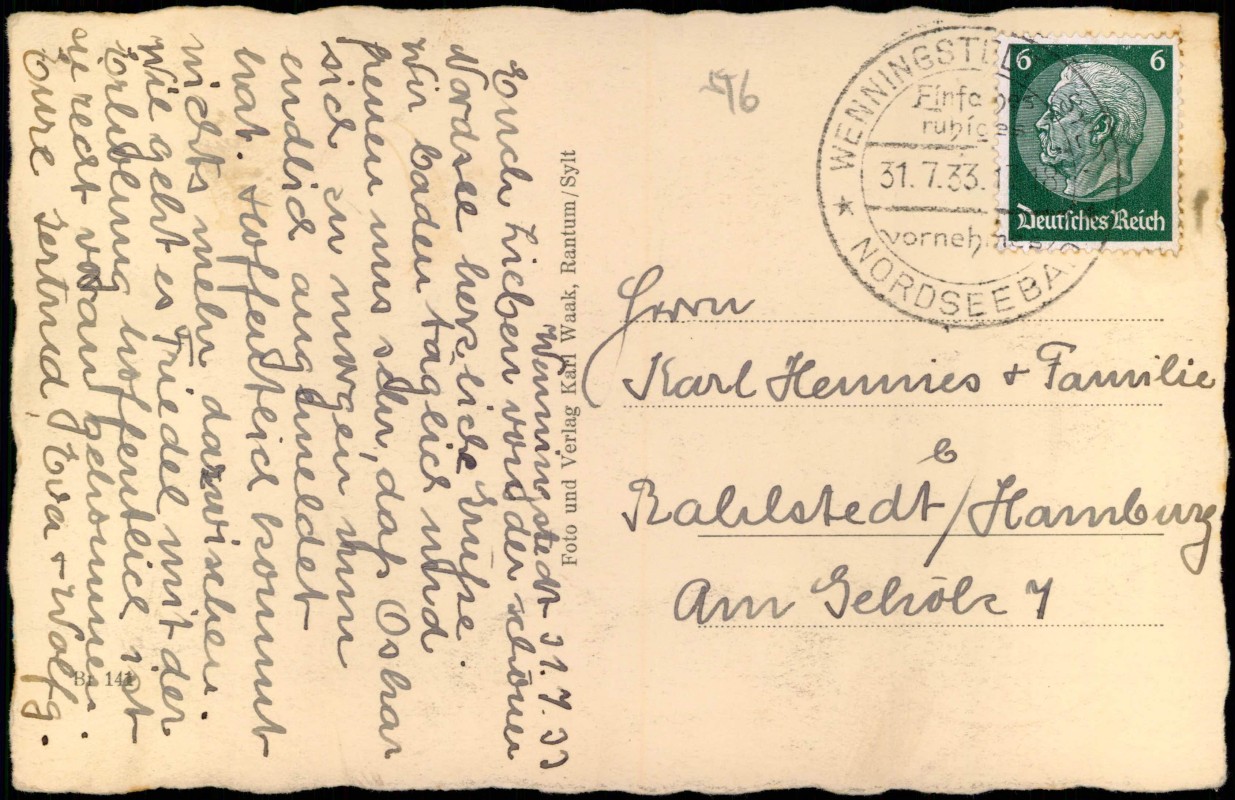 Wenningstedt 31.7.33
Euch Lieben von der schönen
Nordsee herzliche Grüße.
Wir baden täglich und
freuen uns sehr, daß Oskar
sich zu morgen nun
endlich angemeldet
hat. Hoffentlich kommt
nichts mehr dazwischen.
Wie geht es Friedel mit der
Erholung hoffentlich ist
sie recht voran gekommen.
Eure Gertrud, Eva + Wolfg.
Br 141
Foto und Verlag Karl Waak, Rantum/Sylt
WENNINGSTEDT
ruhiges
31.7.33.
vornehmes
NORDSEEBAD
6 6
Deutsches Reich
Herrn
Karl Hennies + Familie
b
Rahlstedt/Hamburg
Am Gehölz 7